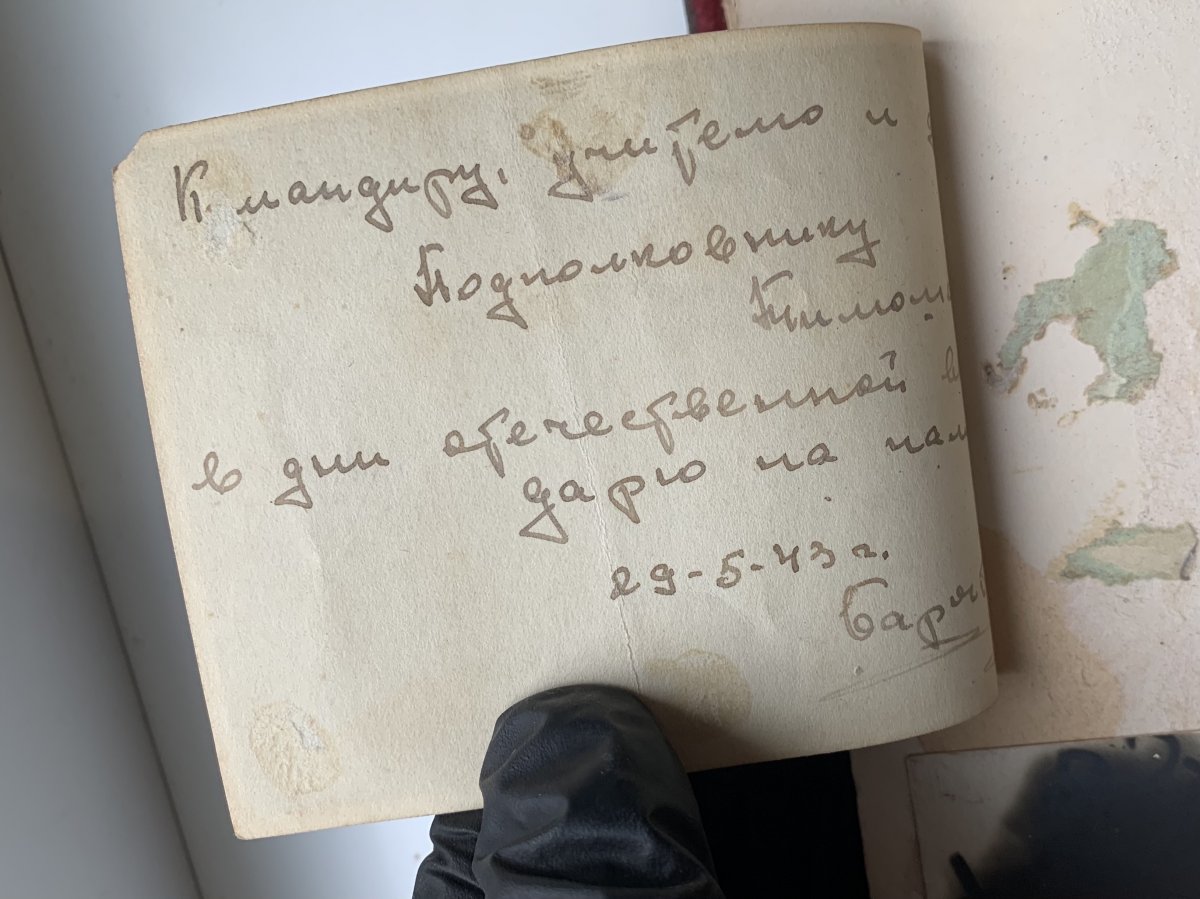 К мандиру, учителю и
Подполковнику
в дни отечественной
дарю на
29-5-43 г.